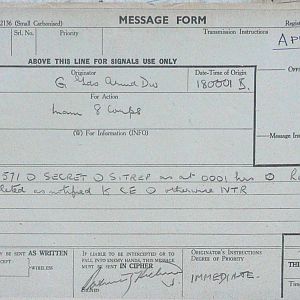 2136 (Small Carbonised)
MESSAGE FORM
Regist
Srl. No.
Priority
Transmission Instructions
AP
ABOVE THIS LINE FOR SIGNALS USE ONLY
Originator
Date-Time of Origin
Office
G Gds Armd Div
180001 B.
For Action
Main 8 Corps
(W) For Information (INFO)
Origina
571 O SECRET O SITREP as at 0001 hrs O
as notified to CE O otherwise NTR
BE SENT AS WRITTEN
WIRELESS
IF LIABLE TO BE INTERCEPTED OR TO
FALL INTO ENEMY HANDS, THIS MESSAGE
MUST BE SENT IN CIPHER
ORIGINATOR'S INSTRUCTIONS
DEGREE OF PRIORITY
IMMEDIATE.